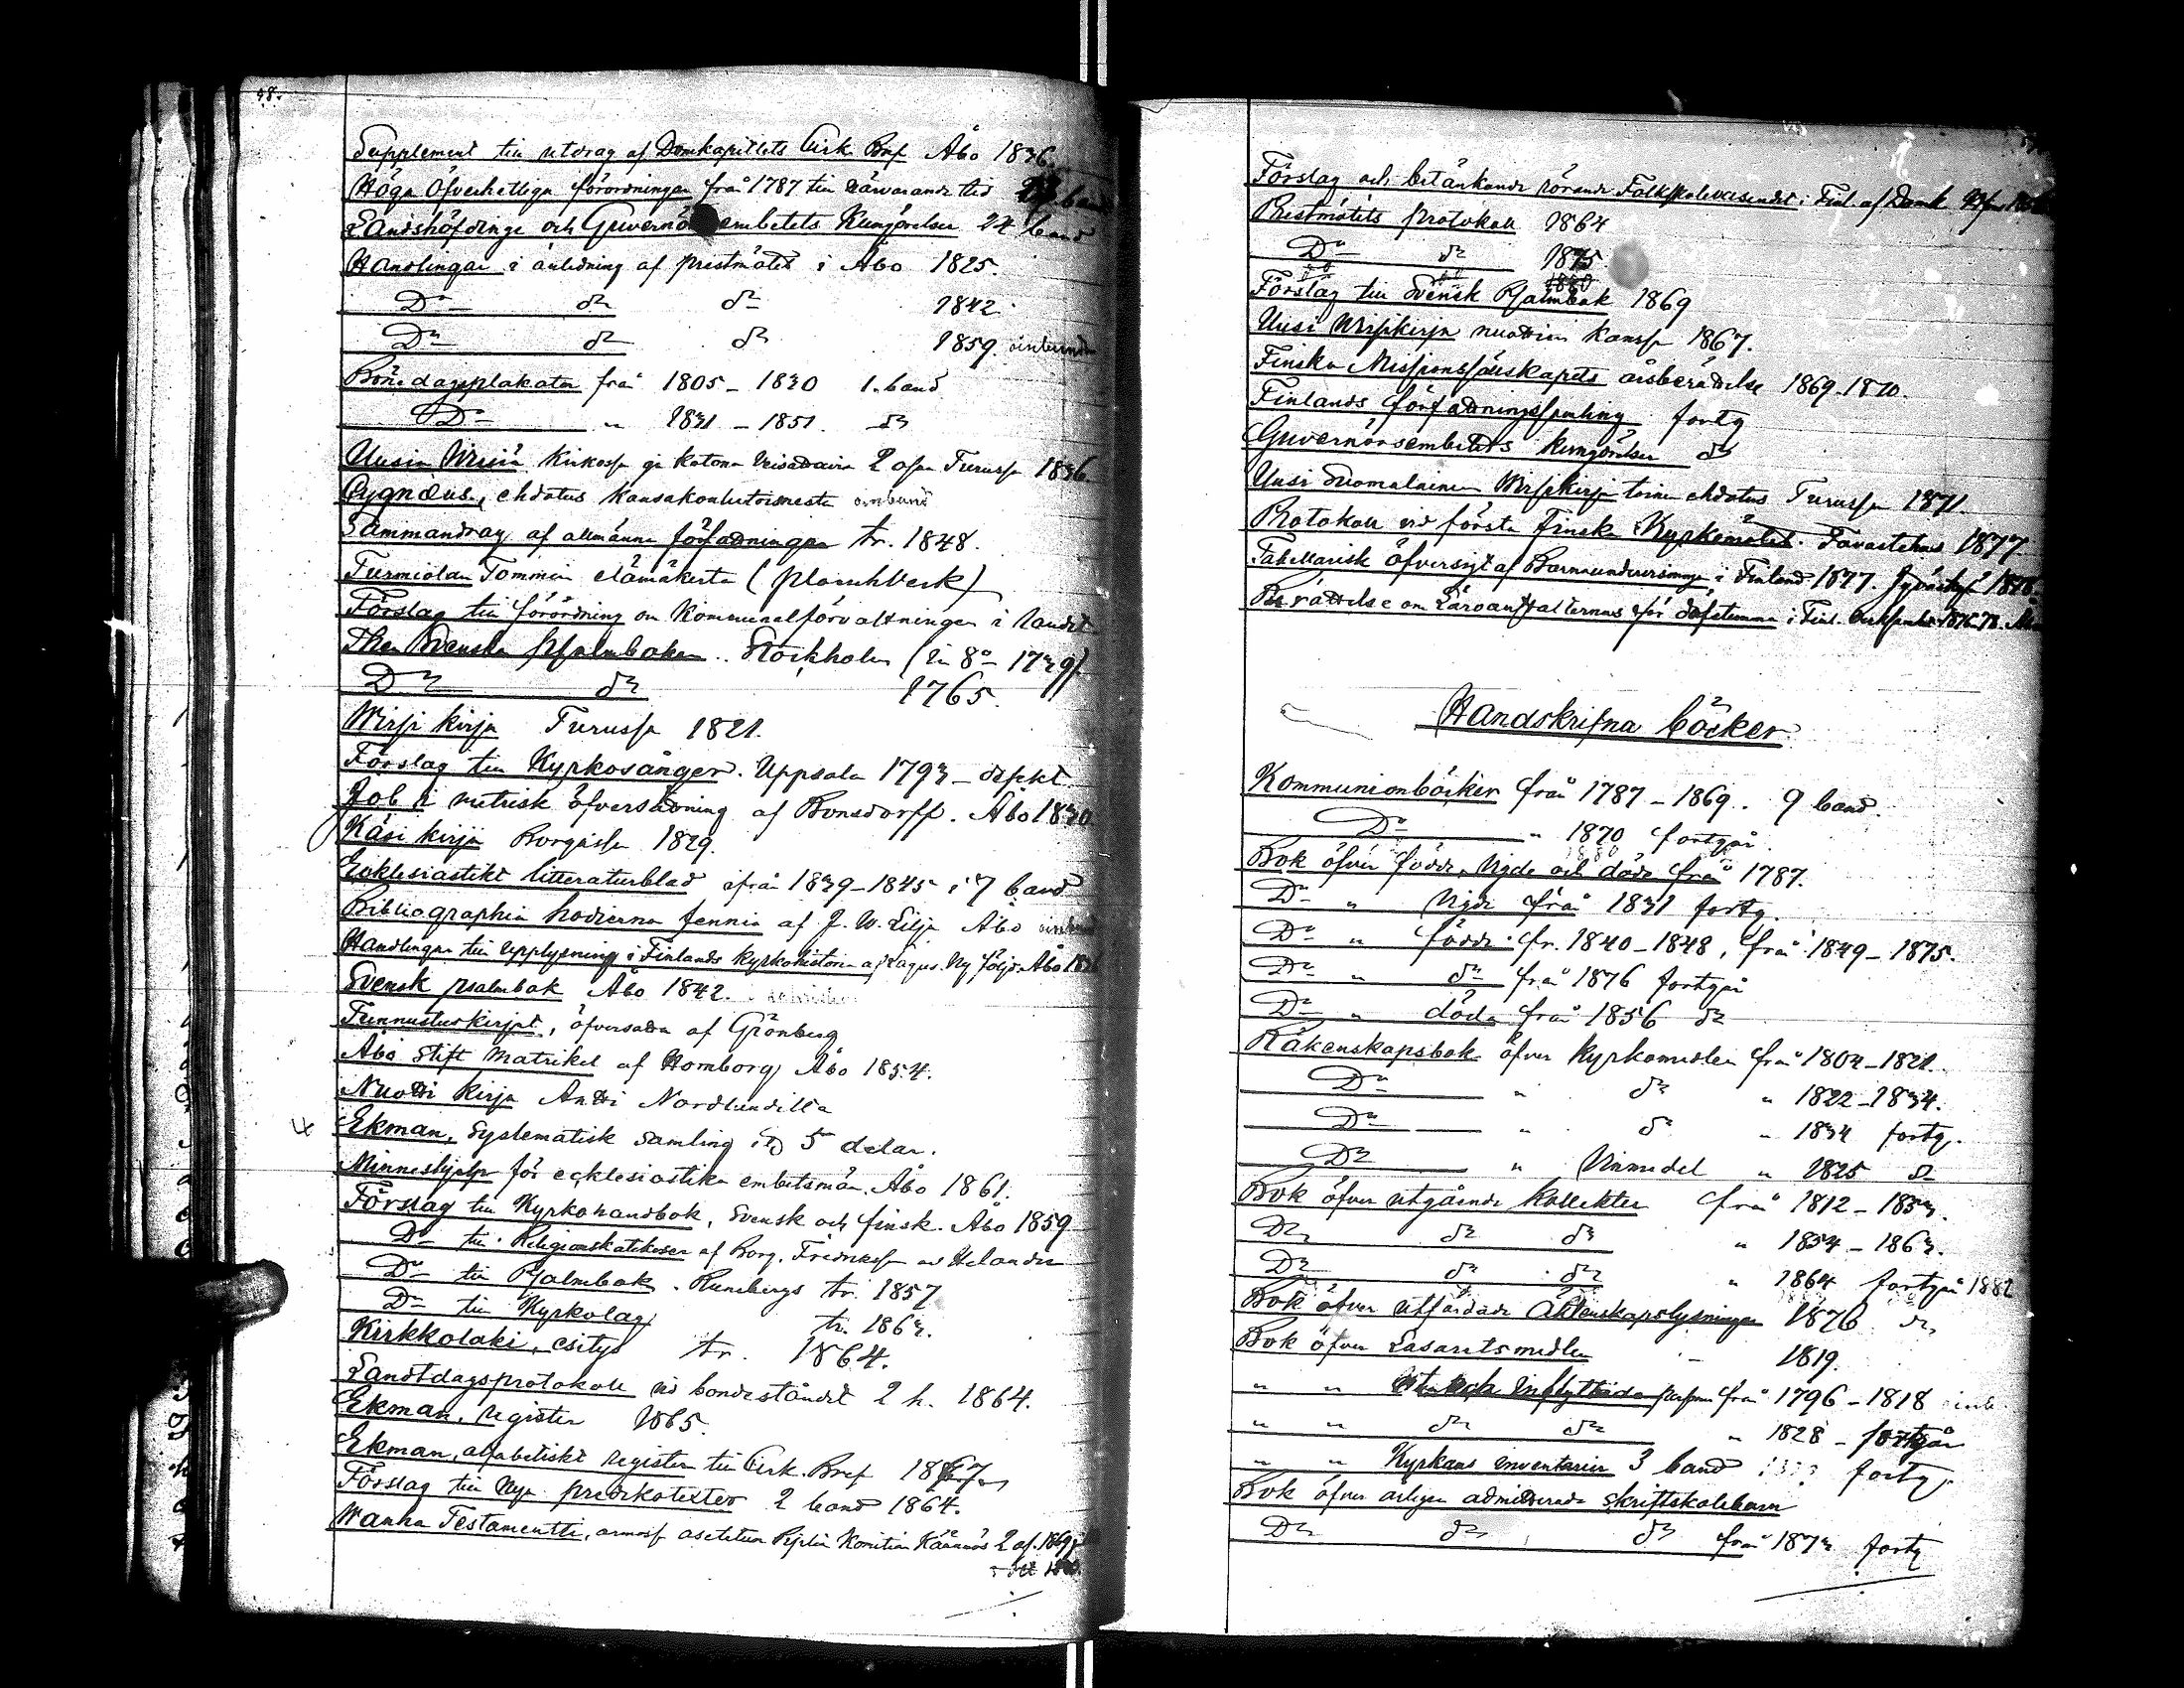 58.
Supplement till utdrag af Domkapitlets Cirk. Bref Åbo 1836.
Höga Öfverhetliga förordningar från 1787 till närvarande tid band
Landshöfdinge och Guvernörsembetets Kungörelser 24 band
Handlingar i anledning af prestmötet i Åbo 1825.
Do do do 1842.
Do do do 1859. oinbunden
Bönedagsplakater från 1805-1830 1. band
Do " 1831-1851. do
Uusia Wirsiä Kirkossa ja kotona veisattavia 2 osa Turussa 1836
Cygnæus, ehdotus kansakoulutoimesta oinbund
Sammandrag af allmänna författningar tr. 1848.
Turmiolan Tommin elämäkerta (planchverk)
Förslag till förordning om Kommunalförvaltningen i landet
Then Svenska Psalmboken. Stockholm (in 8o 1739)
Do do 1765.
Wirsi kirja Turussa 1821.
Förslag till Kyrkosånger. Uppsala 1793 - defekt
Job i metrisk öfversättning af Bonsdorff. Åbo 1830
Käsi kirja Borgåssa 1829.
Ecklesiastikt litteraturblad ifrån 1839-1845 i 7 band
Bibliographia hodierna Fennia af J. W. Lilja Åbo
Handlingar till upplysning i Finlands kyrkohistoria af Lagus. Ny följd. Åbo
Svensk psalmbok Åbo 1842.
Tunnustuskirjat, öfversatta af Grönberg
Åbo stift Matrikel af Homborg Åbo 1854.
Nuotti kirja Antti Nordlundilta
Ekman, Systematisk samling 5 delar.
Minneshjelp för ecklesiastika embetsmän. Åbo 1861.
Förslag till Kyrkohandbok, Svensk och finsk. Åbo 1859
Do till Religionskatekeser af Borg, Fredrikss. o. Helander
Do till Psalmbok. Runebergs tr. 1857
Do till Kyrkolag tr. 1863.
Kirkkolaki, esitys tr. 1864.
Landtdagsprotokoll vid bondeståndet 2 h. 1864.
Ekman, register 1865.
Ekman, alfabetiskt register till Cirk. Bref 1867
Förslag till Nya predikotexter 2 band 1864.
Wanha Testamentti, asetetun Piplia Komitean Käännös
Förslag och betänkande rörande Folkskoleväsendet i Finl. af
Prestmötets protokoll 1864
Do do 1875.
1880
Förslag till Svensk Psalmbok 1869
Uusi Wirsikirja nuottien kanssa 1867.
Finska Missionssällskapets årsberättelse 1869-1870.
Finlands författningssamling fortg
Guvernörsembetets kungörelser do
Uusi Suomalainen Wirsikirja toinen ehdotus Turussa 1871.
Protokoll vid första Finska Kyrkomötet. Tavastehus 1877
Tabellarisk öfversigt af Barnaundervisningen i Finland 1877.
Berättelse om Läroanstalterna för döfstumma i Finl.
Handskrifna böcker
Kommunionböcker från 1787-1869. 9 band.
Do " 1870 fortgår.
Bok öfver födde, vigde och döde från 1787.
Do " Vigde från 1831 fortg.
Do " födde fr. 1840-1848, från 1849-1875.
Do " do från 1876 fortgår
Do " döda från 1856 do
Räkenskapsbok öfver Kyrkomedlen från 1804-1821.
Do " do " 1822-1834.
Do " do " 1834 fortg.
Do " Vinmedel " 1825 do
Bok öfver utgående kollekter från 1812-1853.
Do do do " 1854-1863.
Do do do " 1864 fortgår 1882
Bok öfver utfärdade Äktenskapslysningar 1876 do
Bok öfver Lasarettsmedlen - 1819.
" " ut och inflyttade person från 1796-1818
" " do do " 1828 - fortgår
" " Kyrkans inventarier 3 band fortg.
Bok öfver årligen admitterade skriftskolebarn
Do do do från 1873 fortg